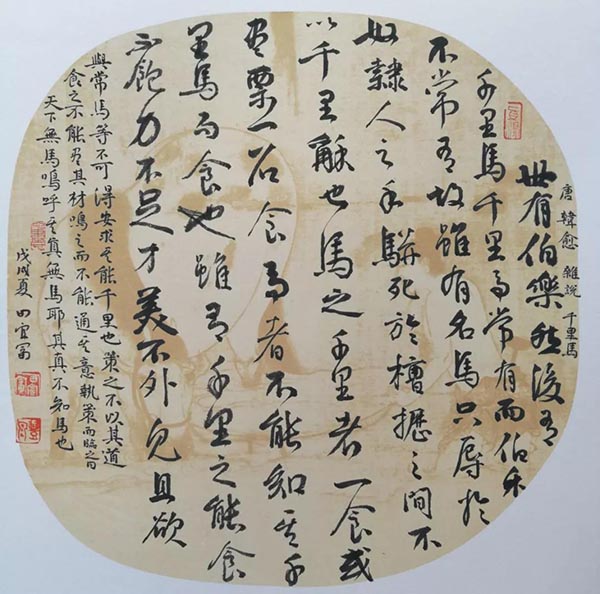 唐 韓愈 雜説 千里馬
世有伯樂然後有
千里馬千里馬常有而伯乐
不常有故雖有名馬只辱於
奴隸人之手駢死於槽櫪之間不
以千里稱也馬之千里者一食或
盡粟一石食馬者不能知其千
里馬而食也雖有千里之能食
不飽力不足才美不外見且欲
與常馬等不可得安求其能千里也策之不以其道
食之不能盡其材鳴之而不能通其意執策而臨之曰
天下無馬嗚呼其真無馬耶其真不知馬也
戊戌夏 田宜